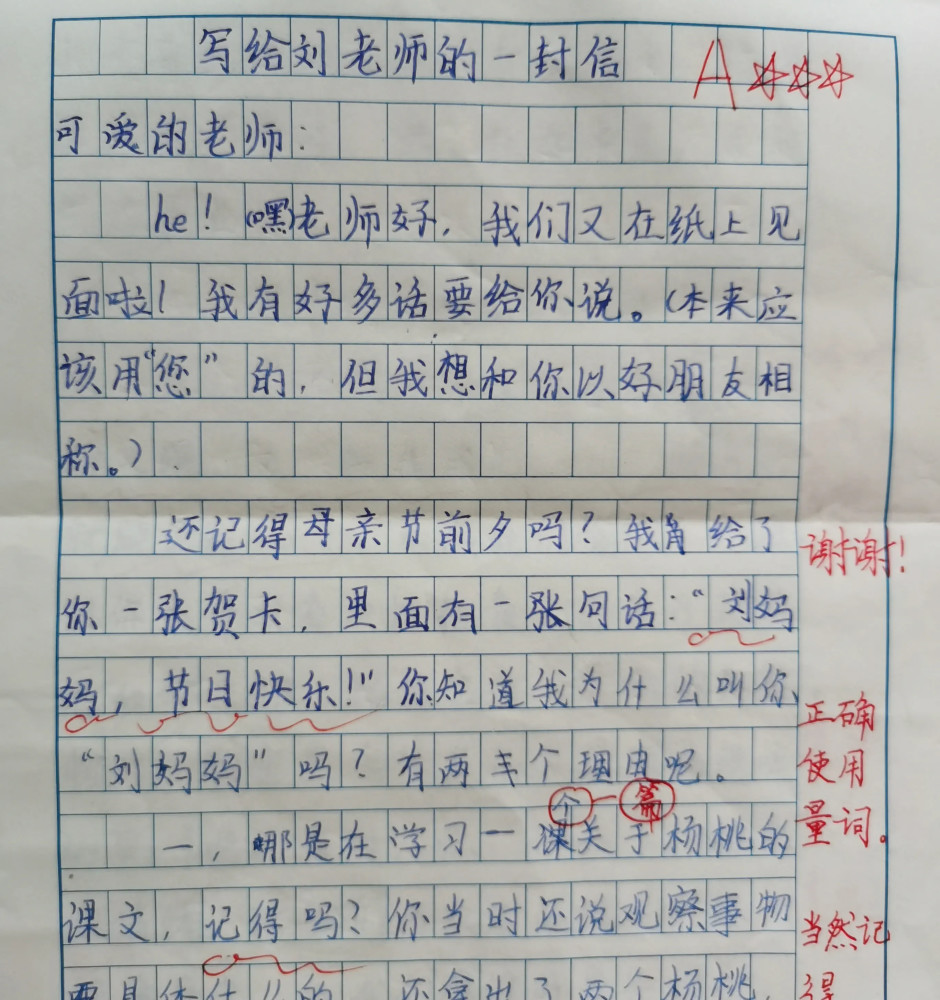 写给刘老师的一封信
A☆☆☆
可爱的老师:
he!(嘿)老师好,我们又在纸上见
面啦!我有好多话要给你说。(本来应
该用“您”的,但我想和你以好朋友相
称。)
还记得母亲节前夕吗?我 给了
谢谢!
你一张贺卡,里面有一张句话:“刘妈
妈,节日快乐!”你知道我为什么叫你
“刘妈妈”吗?有两 个理由呢。
正确
使用
量词。
个 篇
一,哪是在学习一课关于杨桃的
课文,记得吗?你当时还说观察事物
当然记
得
要具体什么的,还拿出了两个杨桃,